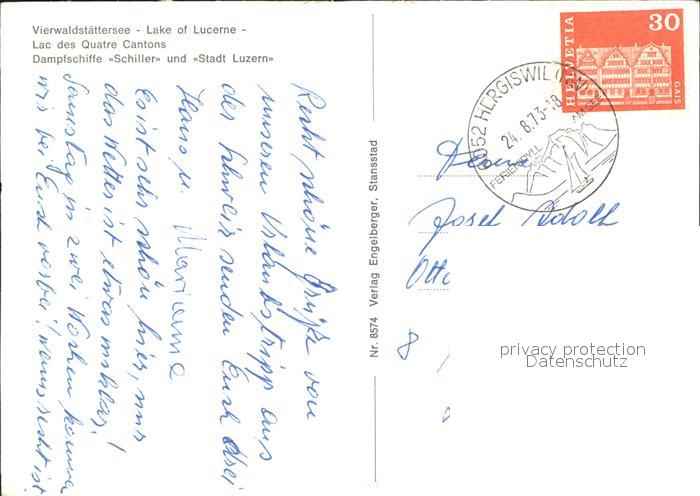 Vierwaldstättersee - Lake of Lucerne -
Lac des Quatre Cantons
Dampfschiffe «Schiller» und «Stadt Luzern»
Recht schöne Grüße von
unserem Urlaubstripp aus
der Schweiz senden Euch drei
Hans u. Marianne
Es ist sehr schön hier, nur
das Wetter ist etwas unklar!
Samstag in zwei Wochen kommen
wir bei Euch vorbei! wenns recht ist
Nr. 8574 Verlag Engelberger, Stansstad
HELVETIA
30
GAIS
6052 HERGISWIL (NW)
24.8.73-18
FERIENIDYLL
AM SEE
Josef Adolf
Otte
8
privacy protection
Datenschutz